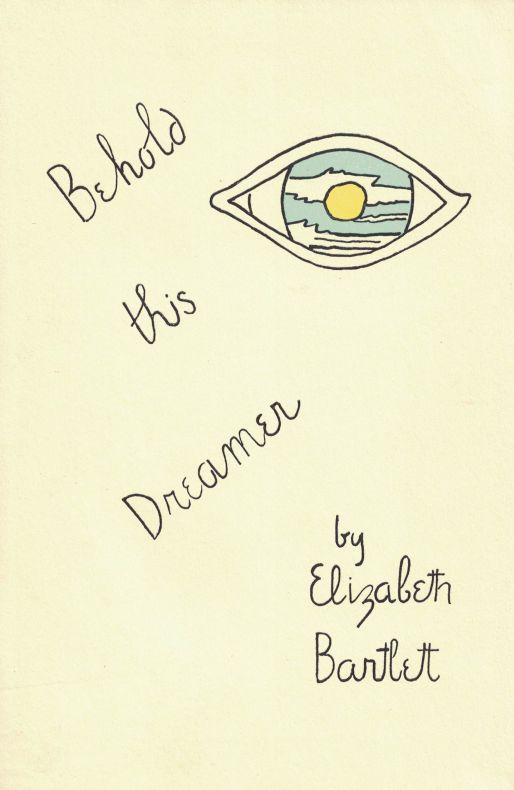 Behold
this
Dreamer
by
Elizabeth
Bartlett